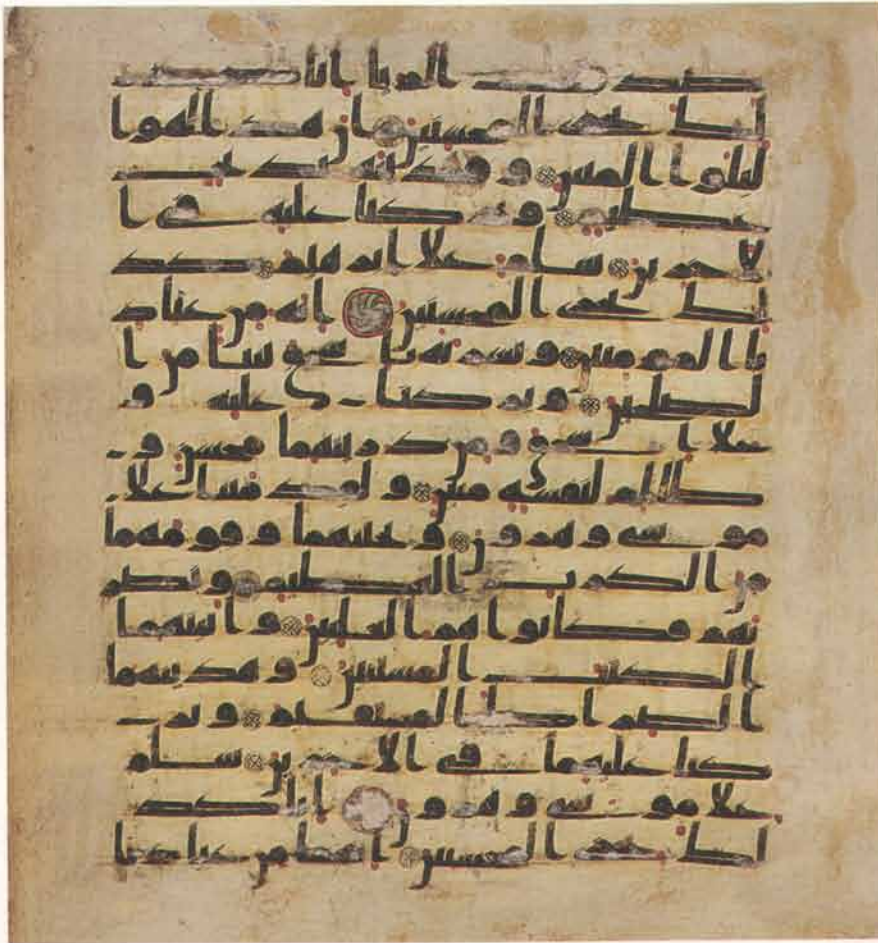 صدقت الريا انا كذ
لك نجزي المحسنين ان هذا لهو ا
لبلوا المبين وفدينه بذبح
عظيم وتركنا عليه في ا
لاخرين سلم على ابرهيم كذ
لك نجزي المحسنين انه من عباد
نا المومنين وبشرنه باسحق نبيا من ا
لصلحين وبركنا عليه و
على اسحق ومن ذريتهما محسن و
ظالم لنفسه مبين ولقد مننا على
موسى وهرون ونجينهما وقومهما
من الكرب العظيم ونصر
نهم فكانوا هم الغلبين واتينهما
الكتب المستبين وهدينهما
الصرط المستقيم وتر
كنا عليهما في الاخرين سلم
على موسى وهرون انا كذ
لك نجزي المحسنين انهما من عبادنا